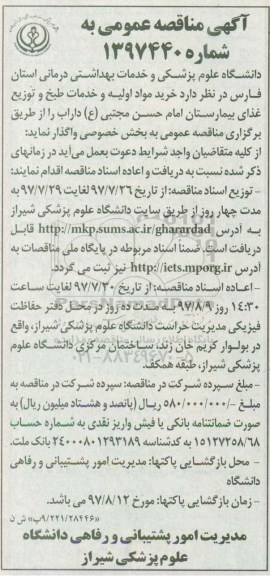 آگهی مناقصه عمومی به
شماره ۱۳۹۷۴۴۰
دانشگاه علوم پزشکی و خدمات بهداشتی درمانی استان
فارس در نظر دارد خرید مواد اولیه و خدمات طبخ و توزیع
غذای بیمارستان امام حسن مجتبی (ع) داراب را از طریق
برگزاری مناقصه عمومی به بخش خصوصی واگذار نماید؛
از کلیه متقاضیان واجد شرایط دعوت بعمل می‌آید در زمانهای
ذکر شده نسبت به دریافت و اعاده اسناد مناقصه اقدام نمایند:
- توزیع اسناد مناقصه: از تاریخ ۹۷/۷/۲۶ لغایت ۹۷/۷/۲۹ به
مدت چهار روز از طریق سایت دانشگاه علوم پزشکی شیراز
به آدرس http://mkp.sums.ac.ir/gharardad قابل
دریافت است. ضمناً اسناد مربوطه در پایگاه ملی مناقصات به
آدرس http://iets.mporg.ir نیز ثبت می گردد.
- اعاده اسناد مناقصه: از تاریخ ۹۷/۷/۳۰ لغایت ساعت
۱۴:۳۰ روز ۹۷/۸/۹ به مدت ده روز در محل دفتر حفاظت
فیزیکی مدیریت حراست دانشگاه علوم پزشکی شیراز، واقع
در بولوار کریم خان زند، ساختمان مرکزی دانشگاه علوم
پزشکی شیراز، طبقه همکف.
- مبلغ سپرده شرکت در مناقصه: سپرده شرکت در مناقصه به
مبلغ ۵۸۰/۰۰۰/۰۰۰/- ریال (پانصد و هشتاد میلیون ریال) به
صورت ضمانتنامه بانکی یا فیش واریز نقدی به شماره حساب
۱۵۱۲۷۲۵۸/۶۸ به کدشناسه ۲۴۰۰۰۸۰۱۲۹۳۱۸۹ بانک ملت.
- محل بازگشایی پاکتها: مدیریت امور پشتیبانی و رفاهی
دانشگاه
- زمان بازگشایی پاکتها: مورخ ۹۷/۸/۱۲ می باشد.
«۹/۲۲۱/۲۸۴۴۶پ» ش ن
مدیریت امور پشتیبانی و رفاهی دانشگاه
علوم پزشکی شیراز